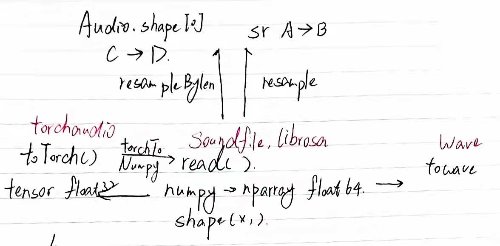 Audio.shape[0]    sr A → B
C → D.
resampleBylen    resample
torchaudio    Soundfile, librosa    Wave
toTorch()    torchTo Numpy    read().    towave
tensor float32    numpy → nparray float64.
shape(x,).